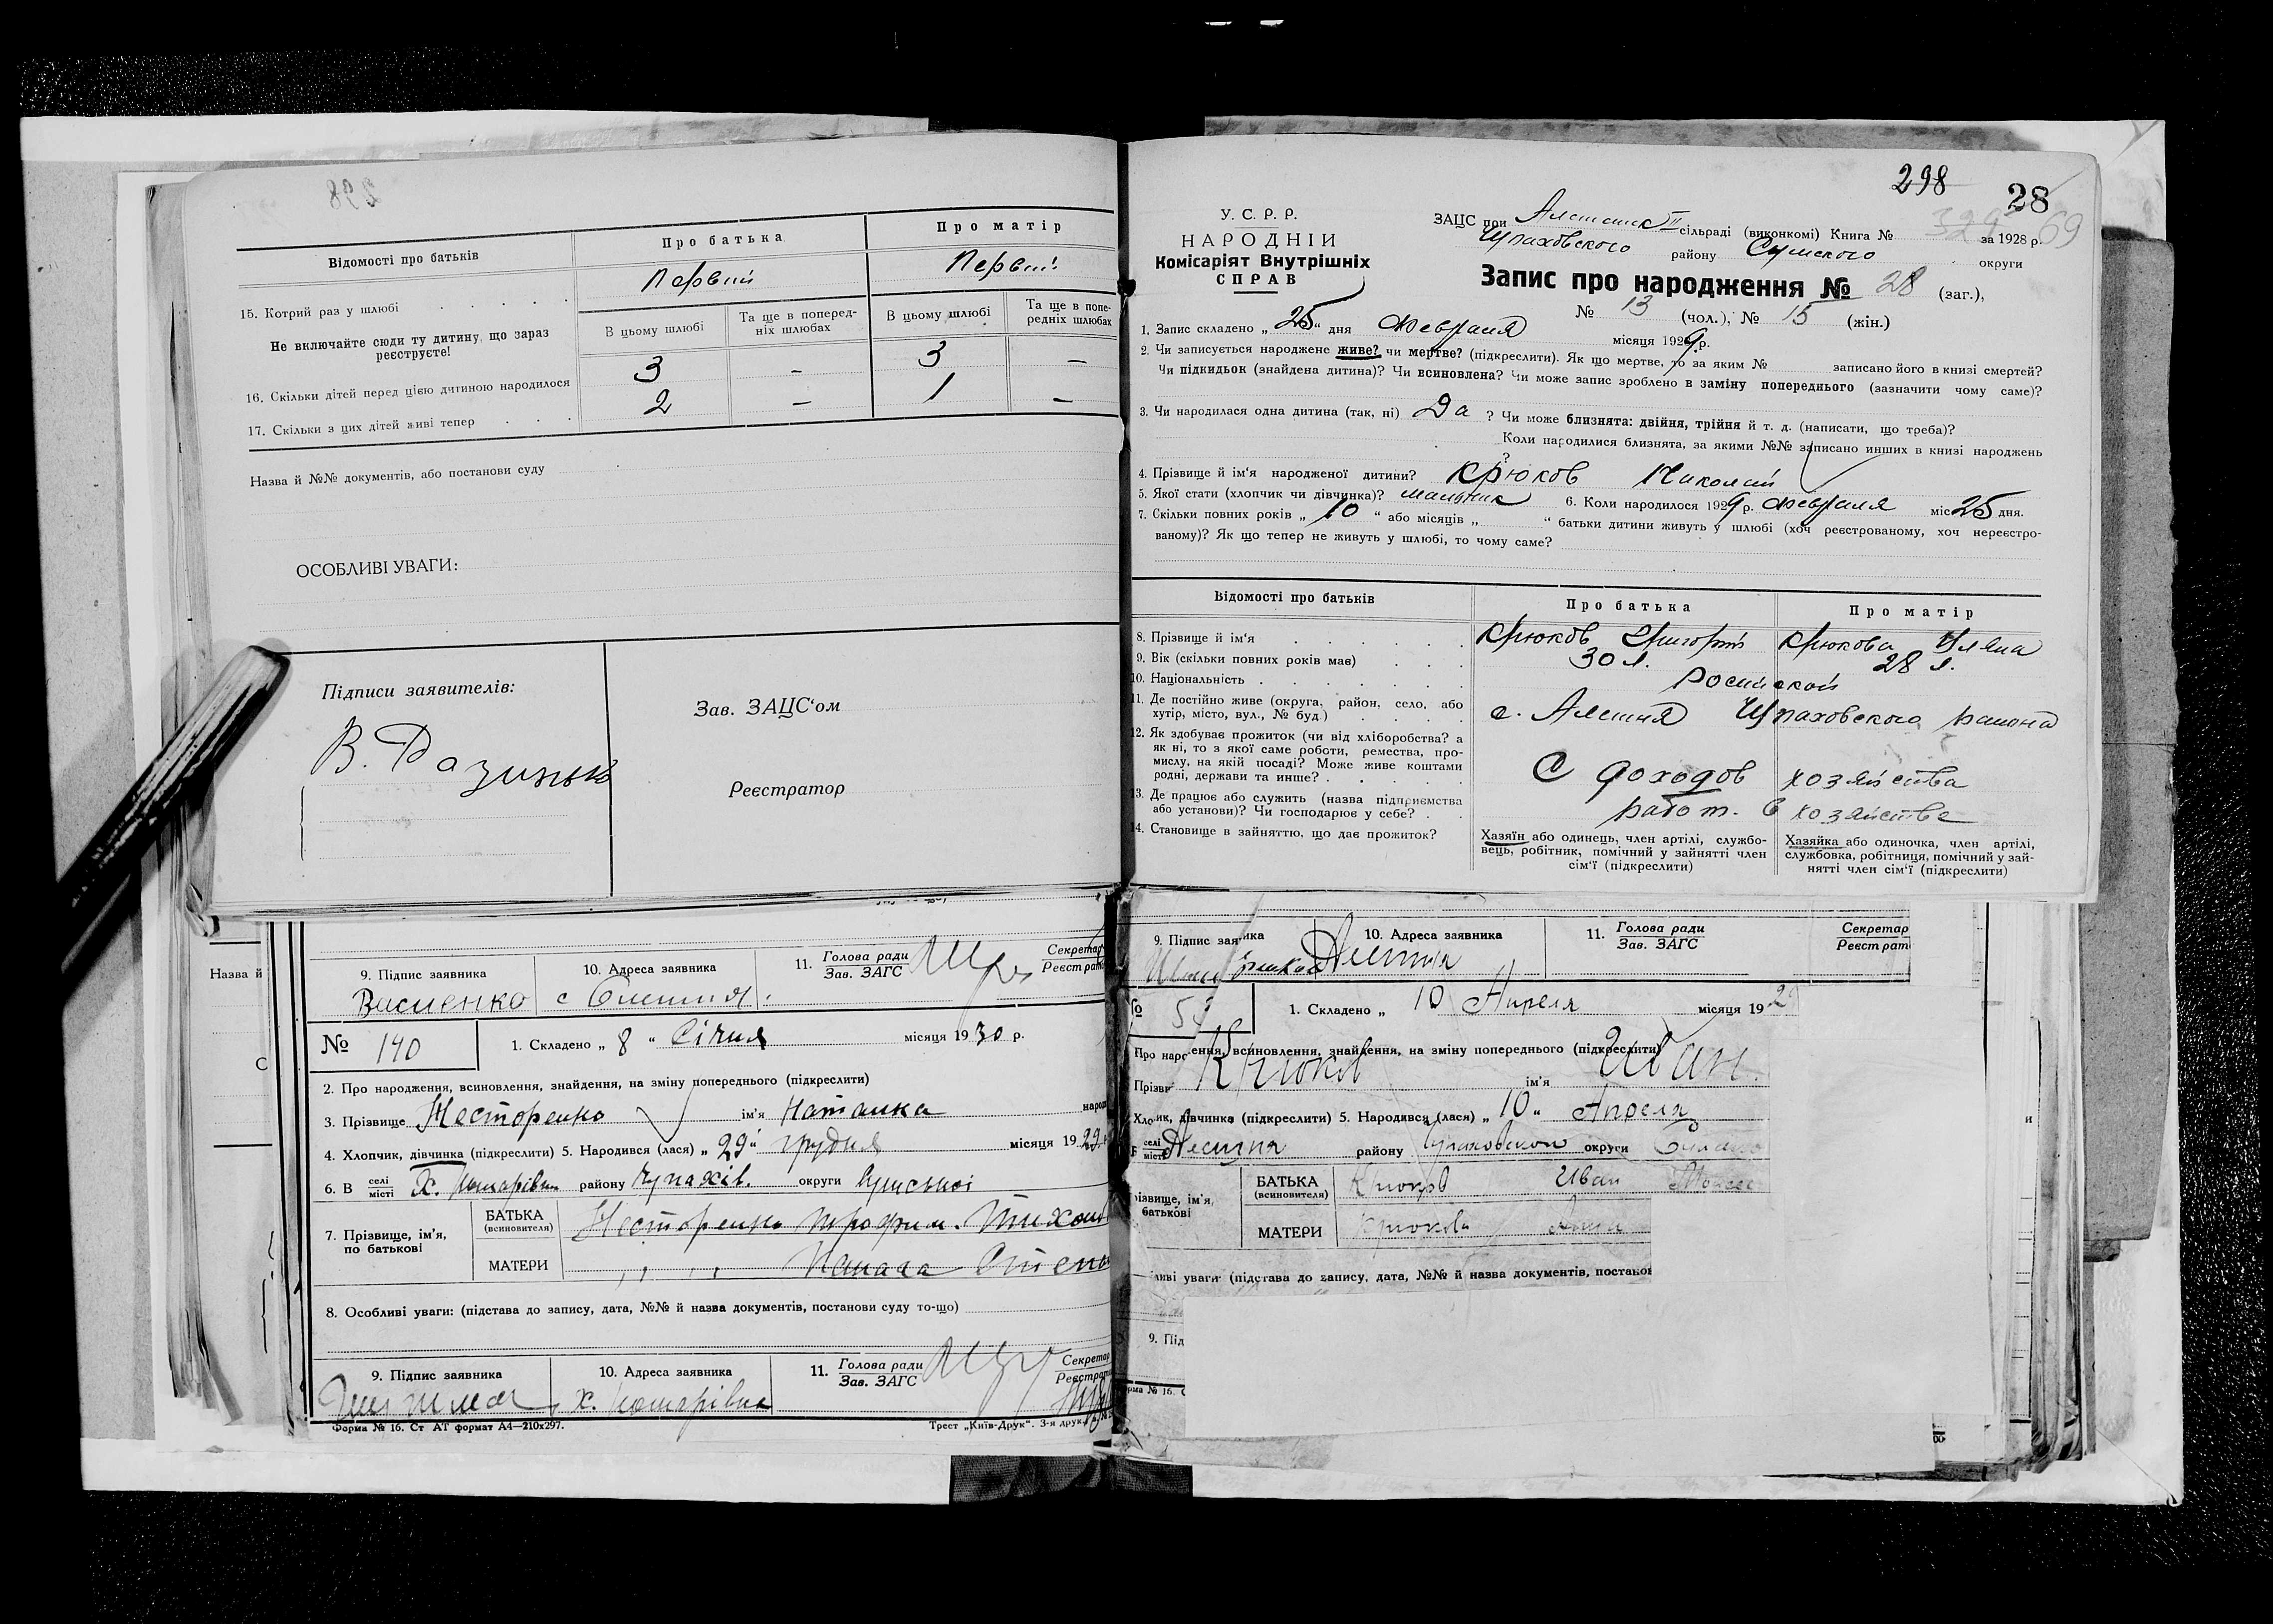 Відомості про батьків
Про батька
Про матір
15. Котрий раз у шлюбі
Первый
Первый
Не включайте сюди ту дитину, що зараз
реєструєте!
В цьому шлюбі
Та ще в поперед-
ніх шлюбах
В цьому шлюбі
Та ще в попе-
редніх шлюбах
16. Скільки дітей перед цією дитиною народилося
3 – 3 –
17. Скільки з цих дітей живі тепер
2 – 1 –
Назва й №№ документів, або постанови суду
ОСОБЛИВІ УВАГИ:
Підписи заявителів:
Зав. ЗАЦС‘ом
Реєстратор
9. Підпис заявника
10. Адреса заявника
11. Голова ради
Зав. ЗАГС
Секретар
Реєстрат
Василенко
№ 140
1. Складено „ 8 “ Січня місяця 1930 р.
2. Про народження, всиновлення, знайдення, на зміну попереднього (підкреслити)
3. Прізвище Несторенко ім‘я Наталка народ
4. Хлопчик, дівчинка (підкреслити) 5. Народився (лася) „ 29 “ грудня місяця 1929
6. В селі
місті Х. Комарівка району Чупахів. округи Сумської
7. Прізвище, ім‘я,
по батькові
БАТЬКА
(всиновителя)
Несторенко Трофим
МАТЕРИ
8. Особливі уваги: (підстава до запису, дата, №№ й назва документів, постанови суду то-що)
9. Підпис заявника
10. Адреса заявника
11. Голова ради
Зав. ЗАГС
Секретар
Реєстрат
х. Комарівка
Форма № 16. Ст АТ формат А4—210х297.
Трест „Київ-Друк“. 3-я друк.
298
28
У. С. Р. Р.
НАРОДНІЙ
Комісаріят Внутрішніх
СПРАВ
ЗАЦС при сільраді (виконкомі) Книга № за 1928 р.
Чупаховского району Сумского округи
Запис про народження № 28 (заг.),
№ 13 (чол.), № 15 (жін.)
1. Запис складено „ 25 “ дня февраля місяця 1929 р.
2. Чи записується народжене живе? чи мертве? (підкреслити). Як що мертве, то за яким № записано його в книзі смертей?
Чи підкидьок (знайдена дитина)? Чи всиновлена? Чи може запис зроблено в заміну попереднього (зазначити чому саме)?
3. Чи народилася одна дитина (так, ні) Да ? Чи може близнята: двійня, трійня й т. д. (написати, що треба)?
Коли народилися близнята, за якими №№ записано инших в книзі народжень
?
4. Прізвище й ім‘я народженої дитини? Крюков Николай
5. Якої стати (хлопчик чи дівчинка)? мальчик 6. Коли народилося 1929 р. февраля міс 25 дня.
7. Скільки повних років „ 10 “ або місяців „ “ батьки дитини живуть у шлюбі (хоч реєстрованому, хоч нереєстро-
ваному)? Як що тепер не живуть у шлюбі, то чому саме?
Відомості про батьків
Про батька
Про матір
8. Прізвище й ім‘я
Крюков Григорий
Крюкова Уляна
9. Вік (скільки повних років має)
30 л.
28 л.
10. Національність
Росийской
11. Де постійно живе (округа, район, село, або
хутір, місто, вул., № буд.)
с. Алешня Чупаховского района
12. Як здобуває прожиток (чи від хліборобства? а
як ні, то з якої саме роботи, ремества, про-
мислу, на якій посаді? Може живе коштами
родні, держави та инше?
С доходов хозяйства
13. Де працює або служить (назва підприємства
або установи)? Чи господарює у себе?
работ. в хозяйстве
14. Становище в зайняттю, що дає прожиток?
Хазяїн або одинець, член артілі, службо-
вець, робітник, помічний у зайнятті член
сім‘ї (підкреслити)
Хазяйка або одиночка, член артілі,
службовка, робітниця, помічний у зай-
нятті член сім‘ї (підкреслити)
9. Підпис заявника
10. Адреса заявника
11. Голова ради
Зав. ЗАГС
Секретар
Реєстрат
1. Складено „ 10 Апреля місяця 1929
Крюков ім‘я Иван
дівчинка (підкреслити) 5. Народився (лася) „ 10 “ Апреля
селі
місті Алешня району Чупаховском округи
БАТЬКА
(всиновителя)
Крюков Иван
МАТЕРИ
Крюкова Анна
уваги (підстава до запису, дата, №№ й назва документів, постанов
9. Під